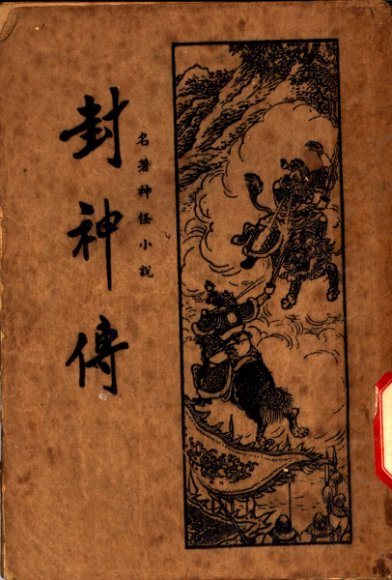 封神傳
名著神怪小說